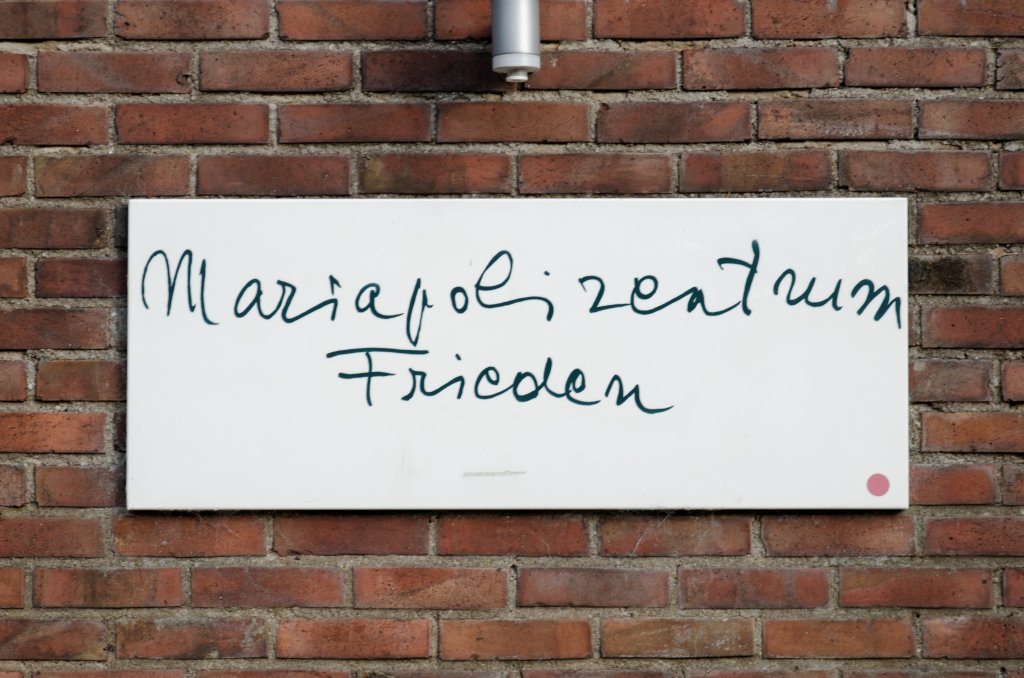 Mariapolizentrum
Frieden